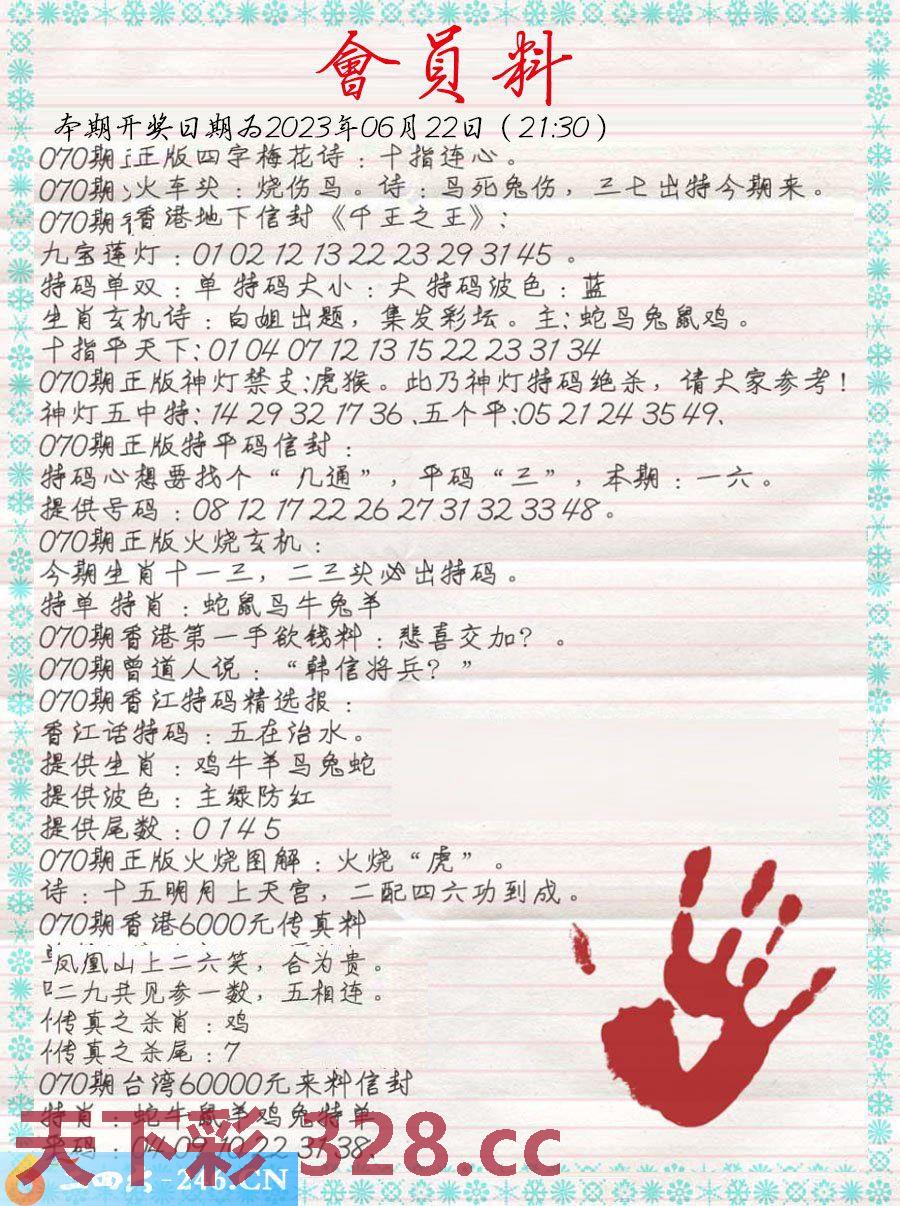 會員料
本期开奖日期为2023年06月22日（21:30）
070期正版四字梅花诗：十指连心。
070期火车头：烧伤鸟。诗：鸟死兔伤，三七出特今期来。
070期香港地下信封《千王之王》：
九宝莲灯：01 02 12 13 22 23 29 31 45 。
特码单双：单 特码大小：大 特码波色：蓝
生肖玄机诗：白姐出题，集发彩坛。主：蛇马兔鼠鸡。
十指平天下：01 04 07 12 13 15 22 23 31 34
070期正版神灯禁支：虎猴。此乃神灯特码绝杀，请大家参考！
神灯五中特：14 29 32 17 36 、五个平：05 21 24 35 49、
070期正版特平码信封：
特码心想要找个“ 几通”，平码“三”，本期：一六。
提供号码：08 12 17 22 26 27 31 32 33 48。
070期正版火烧玄机：
今期生肖十一三，二三头必出特码。
特单 特肖：蛇鼠马牛兔羊
070期香港第一手欲钱料：悲喜交加？ 。
070期曾道人说：“韩信将兵？”
070期香江特码精选报：
香江话特码：五在治水。
提供生肖：鸡牛羊马兔蛇
提供波色：主绿防红
提供尾数：0 1 4 5
070期正版火烧图解：火烧“虎”。
诗：十五明月上天宫，二配四六功到成。
070期香港6000元传真料
凤凰山上二六笑，合为贵。
二九共见参一数，五相连。
传真之杀肖：鸡
传真之杀尾：7
070期台湾60000元来料信封
特肖：蛇牛鼠羊鸡兔特单
平码：04 09 10 22 31 38、
天下彩 328.cc
二四六-246.CN